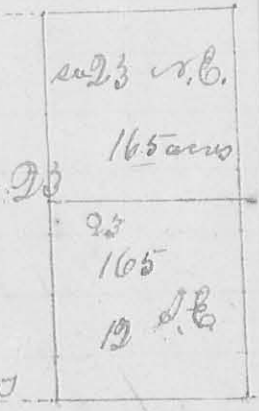 23 N.E.
165 acres
23
23
165
12 S.E.